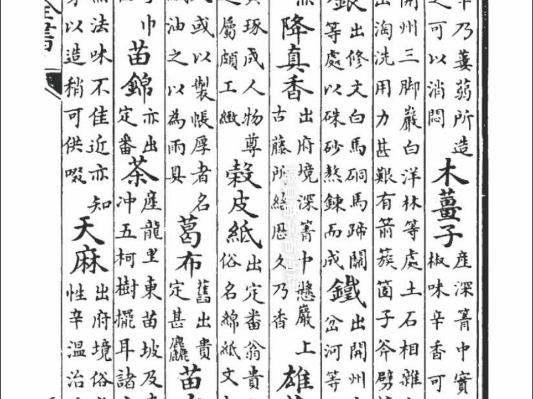 乃蒌蒻所造
之可以消悶
木薑子
産深箐中實
椒味辛香可
開州三脚巖白洋林等處土石相雜
出淘洗用力甚艱有箭蔟箇子斧劈
銀
出修文白馬硐馬蹄關
等處以硃砂熬鍊而成
鐵
出開州
岔河等
降真香
出府境深箐中懸巖上
古藤所結歷久乃香
雄
貢琢成人物尊
之屬頗工緻
榖皮紙
出定番翁貴
俗名綿紙文
或以製帳厚者名
油之以為雨具
葛布
舊出貴
定甚麤
苗
巾
苗錦
亦出
定番
茶
産龍里東苗坡及
冲五柯樹擺耳諸
無法味不佳近亦知
以造稍可供啜
天麻
出府境俗
性辛温治
全書